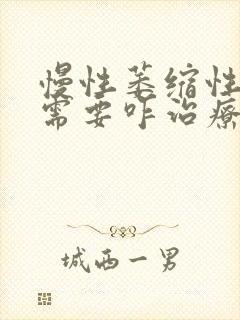 慢性萎缩性
需要咋治疗
城西一男